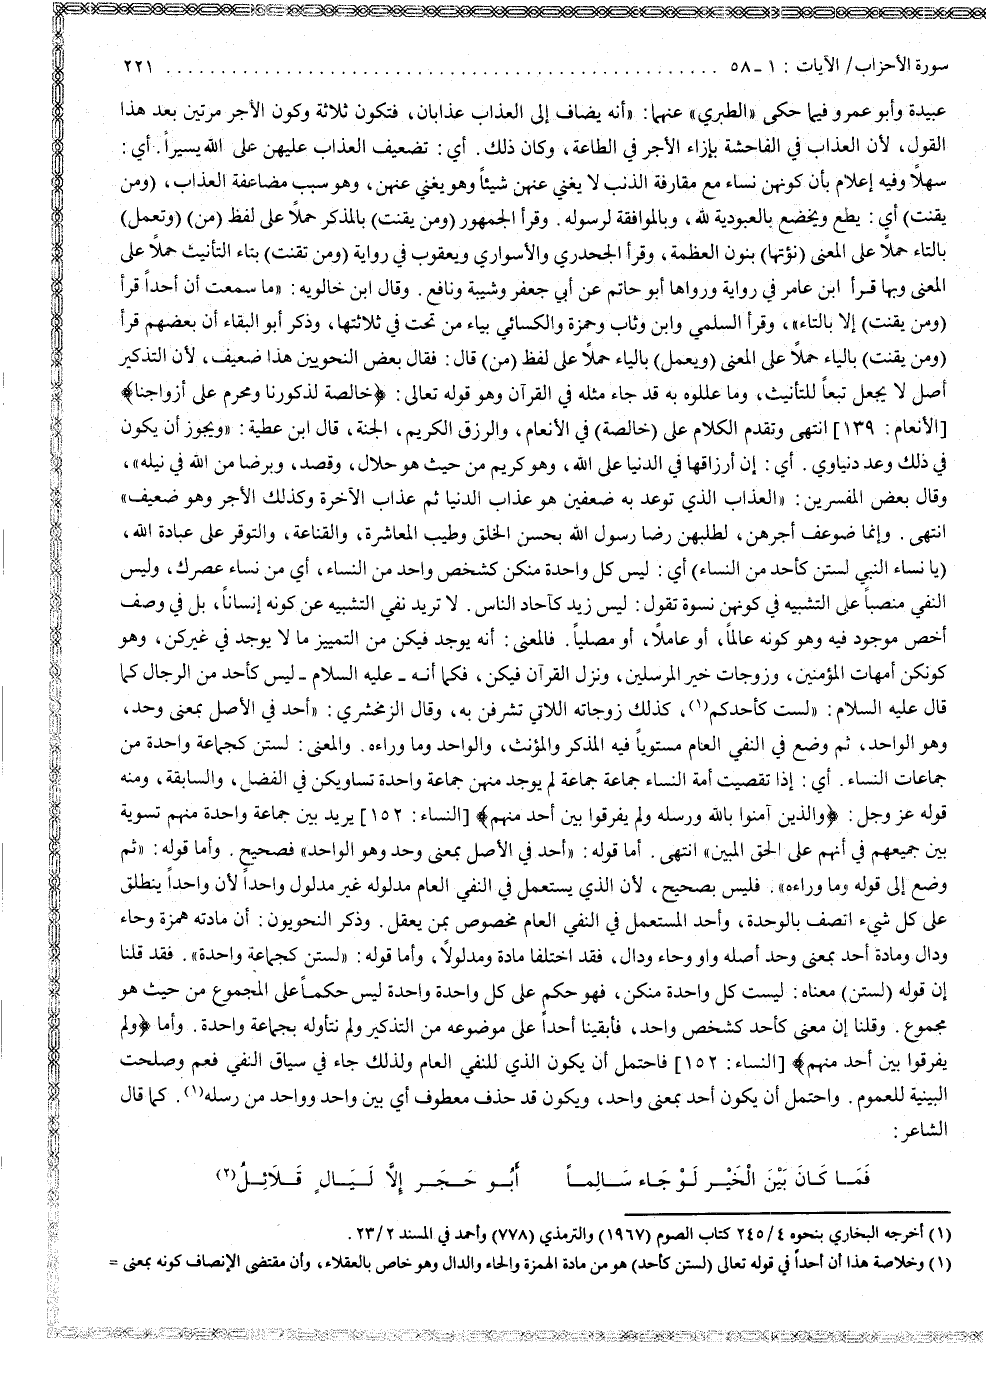 سورة الأحزاب/ الآيات : ١ ـ ٥٨ ................................................ ٢٢١
عبيدة وأبو عمرو فيما حكى «الطبري» عنهما: «أنه يضاف إلى العذاب عذابان، فتكون ثلاثة وكون الأجر مرتين بعد هذا
القول، لأن العذاب في الفاحشة بإزاء الأجر في الطاعة، وكان ذلك. أي: تضعيف العذاب عليهن على الله يسيراً. أي:
سهلاً وفيه إعلام بأن كونهن نساء مع مقارفة الذنب لا يغني عنهن شيئاً وهو يغني عنهن، وهو سبب مضاعفة العذاب، (ومن
يقنت) أي: يطع ويخضع بالعبودية لله، وبالموافقة لرسوله. وقرأ الجمهور (ومن يقنت) بالمذكر حملاً على لفظ (من) (وتعمل)
بالتاء حملاً على المعنى (نؤتها) بنون العظمة، وقرأ الجحدري والأسواري ويعقوب في رواية (ومن تقنت) بتاء التأنيث حملاً على
المعنى وبها قرأ ابن عامر في رواية ورواها أبو حاتم عن أبي جعفر وشيبة ونافع. وقال ابن خالويه: «ما سمعت أن أحداً قرأ
(ومن يقنت) إلا بالتاء»، وقرأ السلمي وابن وثاب وحمزة والكسائي بياء من تحت في ثلاثتها، وذكر أبو البقاء أن بعضهم قرأ
(ومن يقنت) بالياء حملاً على المعنى (ويعمل) بالياء حملاً على لفظ (من) قال: فقال بعض النحويين هذا ضعيف، لأن التذكير
أصل لا يجعل تبعاً للتأنيث، وما عللوه به قد جاء مثله في القرآن وهو قوله تعالى: ﴿خالصة لذكورنا ومحرم على أزواجنا﴾
[الأنعام: ١٣٩] انتهى وتقدم الكلام على (خالصة) في الأنعام، والرزق الكريم، الجنة، قال ابن عطية: «ويجوز أن يكون
في ذلك وعد دنياوي. أي: إن أرزاقها في الدنيا على الله، وهو كريم من حيث هو حلال، وقصد، وبرضا من الله في نيله»،
وقال بعض المفسرين: «العذاب الذي توعد به ضعفين هو عذاب الدنيا ثم عذاب الآخرة وكذلك الأجر وهو ضعيف»
انتهى. وإنما ضوعف أجرهن، لطلبهن رضا رسول الله بحسن الخلق وطيب المعاشرة، والقناعة، والتوقر على عبادة الله،
(يا نساء النبي لستن كأحد من النساء) أي: ليس كل واحدة منكن كشخص واحد من النساء، أي من نساء عصرك، وليس
النفي منصباً على التشبيه في كونهن نسوة تقول: ليس زيد كآحاد الناس. لا تريد نفي التشبيه عن كونه إنساناً، بل في وصف
أخص موجود فيه وهو كونه عالماً، أو عاملاً، أو مصلياً. فالمعنى: أنه يوجد فيكن من التمييز ما لا يوجد في غيركن، وهو
كونكن أمهات المؤمنين، وزوجات خير المرسلين، ونزل القرآن فيكن، فكما أنه ـ عليه السلام ـ ليس كأحد من الرجال كما
قال عليه السلام: «لست كأحدكم(١)، كذلك زوجاته اللاتي تشرفن به، وقال الزمخشري: «أحد في الأصل بمعنى وحد،
وهو الواحد، ثم وضع في النفي العام مستوياً فيه المذكر والمؤنث، والواحد وما وراءه. والمعنى: لستن كجماعة واحدة من
جماعات النساء. أي: إذا تقصيت أمة النساء جماعة جماعة لم يوجد منهن جماعة واحدة تساويكن في الفضل، والسابقة، ومنه
قوله عز وجل: ﴿والذين آمنوا بالله ورسله ولم يفرقوا بين أحد منهم﴾ [النساء: ١٥٢] يريد بين جماعة واحدة منهم تسوية
بين جميعهم في أنهم على الحق المبين» انتهى. أما قوله: «أحد في الأصل بمعنى وحد وهو الواحد» فصحيح. وأما قوله: «ثم
وضع إلى قوله وما وراءه». فليس بصحيح، لأن الذي يستعمل في النفي العام مدلوله غير مدلول واحداً لأن واحداً ينطلق
على كل شيء اتصف بالوحدة، وأحد المستعمل في النفي العام مخصوص بمن يعقل. وذكر النحويون: أن مادته همزة وحاء
ودال ومادة أحد بمعنى وحد أصله واو وحاء ودال، فقد اختلفا مادة ومدلولاً، وأما قوله: «لستن كجماعة واحدة». فقد قلنا
إن قوله (لستن) معناه: ليست كل واحدة منكن، فهو حكم على كل واحدة واحدة ليس حكماً على المجموع من حيث هو
مجموع. وقلنا إن معنى كأحد كشخص واحد، فأبقينا أحداً على موضوعه من التذكير ولم نتأوله بجماعة واحدة. وأما ﴿ولم
يفرقوا بين أحد منهم﴾ [النساء: ١٥٢] فاحتمل أن يكون الذي للنفي العام ولذلك جاء في سياق النفي فعم وصلحت
البينية للعموم. واحتمل أن يكون أحد بمعنى واحد، ويكون قد حذف معطوف أي بين واحد وواحد من رسله(١). كما قال
الشاعر:
فَمَا كَانَ بَيْنَ الْخَيْرِ لَوْ جَاءَ سَالِماً أَبُو حَجَرٍ إِلَّا لَيَالٍ قَلَائِلُ(٢)
(١) أخرجه البخاري بنحوه ٢٤٥/٤ كتاب الصوم (١٩٦٧) والترمذي (٧٧٨) وأحمد في المسند ٢٣/٢.
(١) وخلاصة هذا أن أحداً في قوله تعالى (لستن كأحد) هو من مادة الهمزة والحاء والدال وهو خاص بالعقلاء، وأن مقتضى الإنصاف كونه بمعنى =